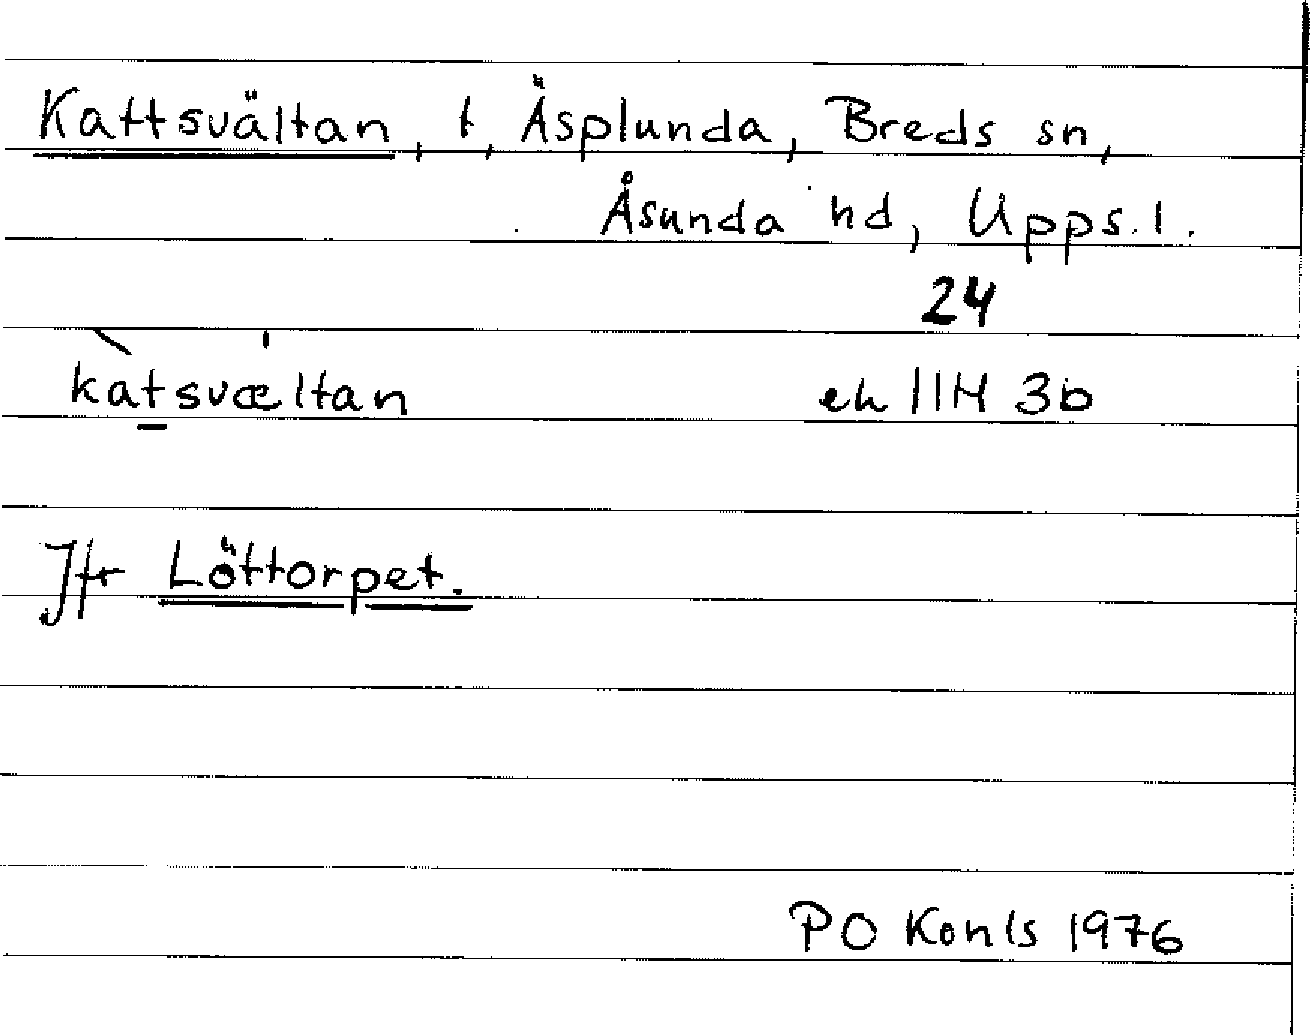 Kattsvältan, t, Äsplunda, Breds sn,
Åsunda hd, Upps. l.
24
katsvæltan ek 11H 3b
Jfr Löttorpet.
PO Konls 1976